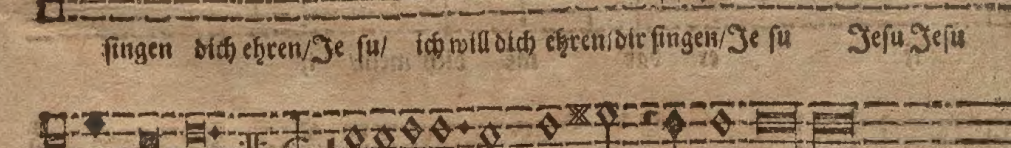 singen dich ehren/Je su/ ich will dich ehren/dir singen/Je su Jesu Jesu